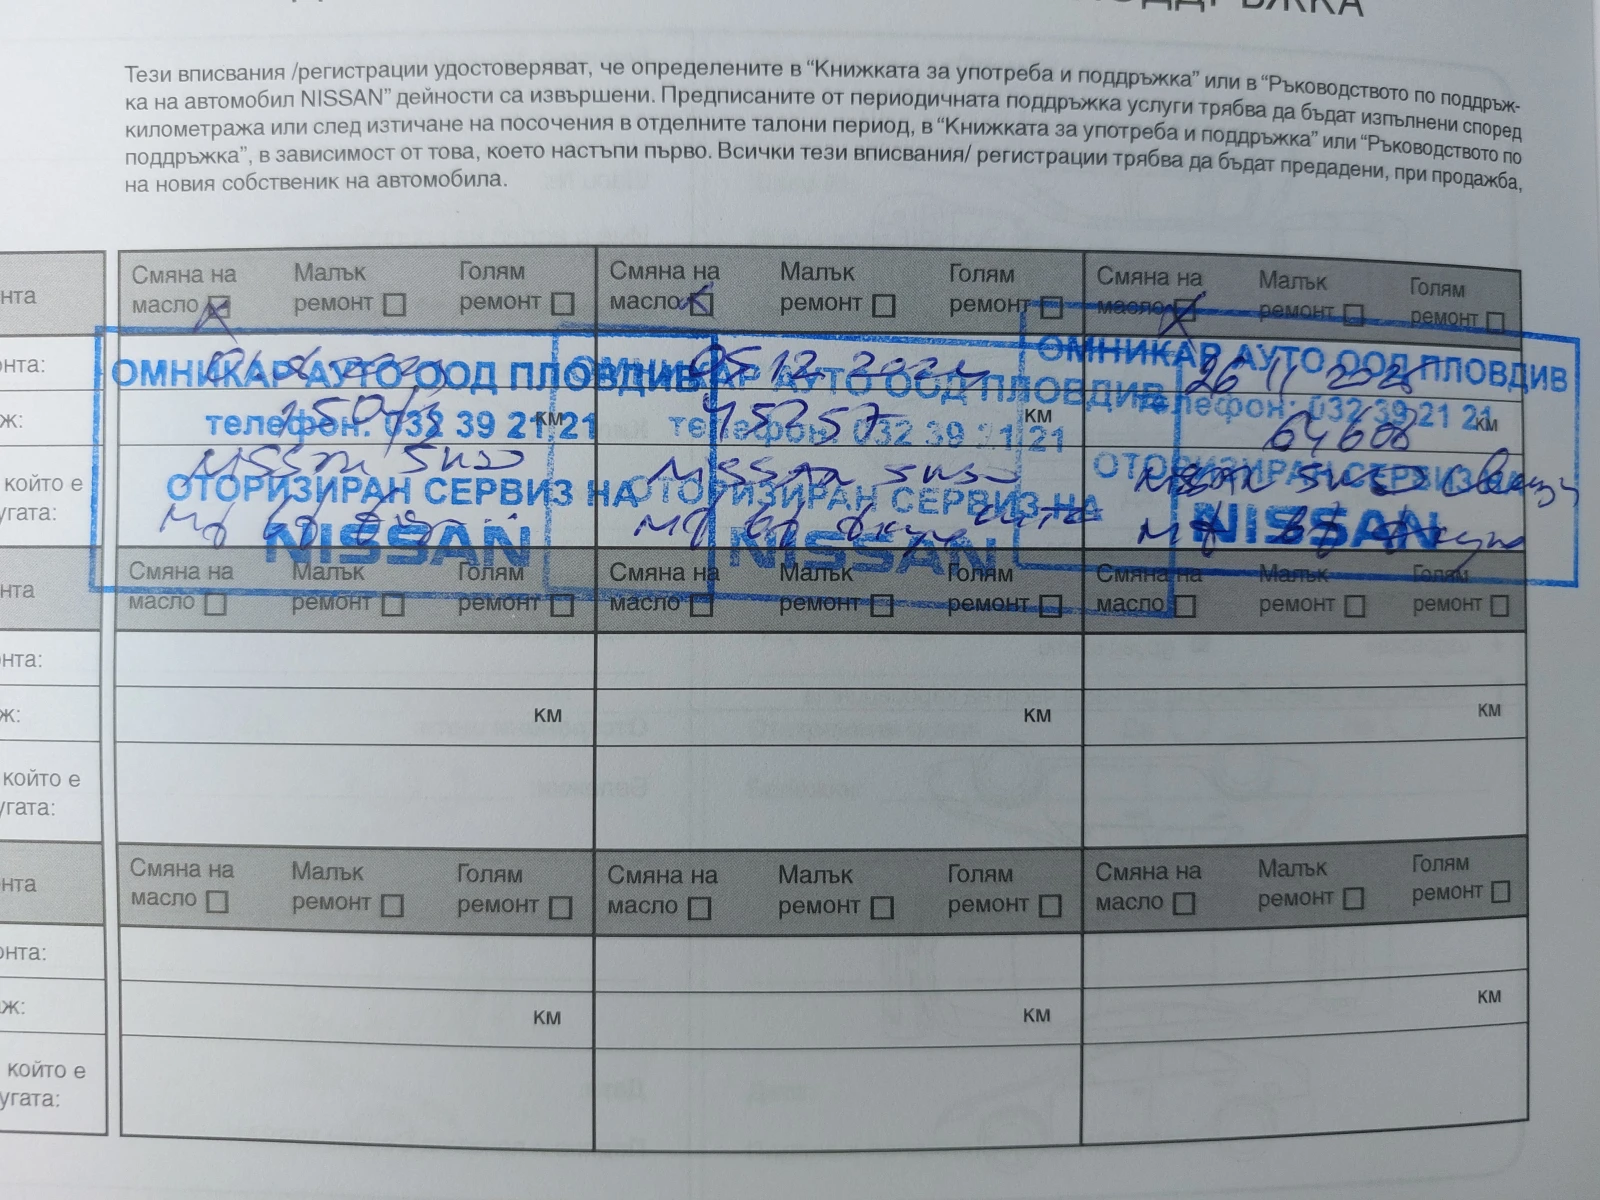 ПОДДРЪЖКА
Тези вписвания /регистрации удостоверяват, че определените в “Книжката за употреба и поддръжка” или в “Ръководството по поддръж-
ка на автомобил NISSAN” дейности са извършени. Предписаните от периодичната поддръжка услуги трябва да бъдат изпълнени според
километража или след изтичане на посочения в отделните талони период, в “Книжката за употреба и поддръжка” или “Ръководството по
поддръжка”, в зависимост от това, което настъпи първо. Всички тези вписвания/ регистрации трябва да бъдат предадени, при продажба,
на новия собственик на автомобила.
нта Смяна на масло Малък ремонт Голям ремонт Смяна на масло Малък ремонт Голям ремонт Смяна на масло Малък ремонт Голям ремонт
онта: 05 12 2024 26 11 2025
ОМНИКАР АУТО ООД ПЛОВДИВ ОМНИКАР АУТО ООД ПЛОВДИВ ОМНИКАР АУТО ООД ПЛОВДИВ
ж: км 45257 км 64608 км
телефон: 032 39 21 21 телефон: 032 39 21 21 телефон: 032 39 21 21
който е Nissan 5W30 Nissan 5W30 Nissan 5W30
угата:
ОТОРИЗИРАН СЕРВИЗ НА ОТОРИЗИРАН СЕРВИЗ НА ОТОРИЗИРАН СЕРВИЗ НА
NISSAN NISSAN NISSAN
нта Смяна на масло Малък ремонт Голям ремонт Смяна на масло Малък ремонт Голям ремонт Смяна на масло Малък ремонт Голям ремонт
онта:
ж: км км км
който е
угата:
нта Смяна на масло Малък ремонт Голям ремонт Смяна на масло Малък ремонт Голям ремонт Смяна на масло Малък ремонт Голям ремонт
онта:
ж: км км км
който е
угата: